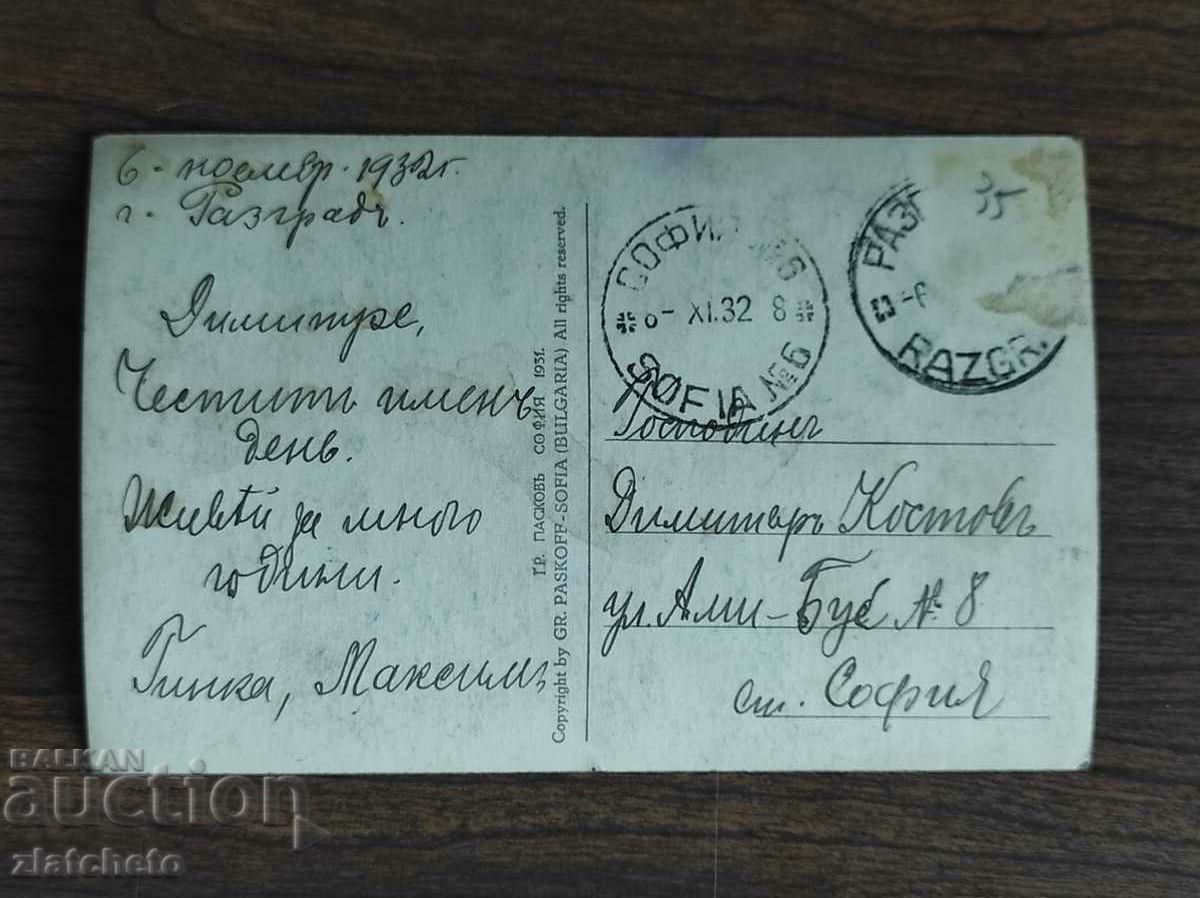 6 - ноемвр. 1932 г.
г. Разградъ.
Димитре,
Честитъ именъ
день.
Живѣй за много
години.
Гинка, Максимъ
ГР. ПАСКОВЪ СОФИЯ 1931.
Copyright by GR. PASKOFF-SOFIA (BULGARIA) All rights reserved.
СОФИЯ №6
- XI.32 8
SOFIA №6
РАЗГ
-6
RAZGR.
35
Господинъ
Димитъръ Костовъ
ул. Ами-Буе № 8
ст. София
BALKAN
auction
zlatcheto